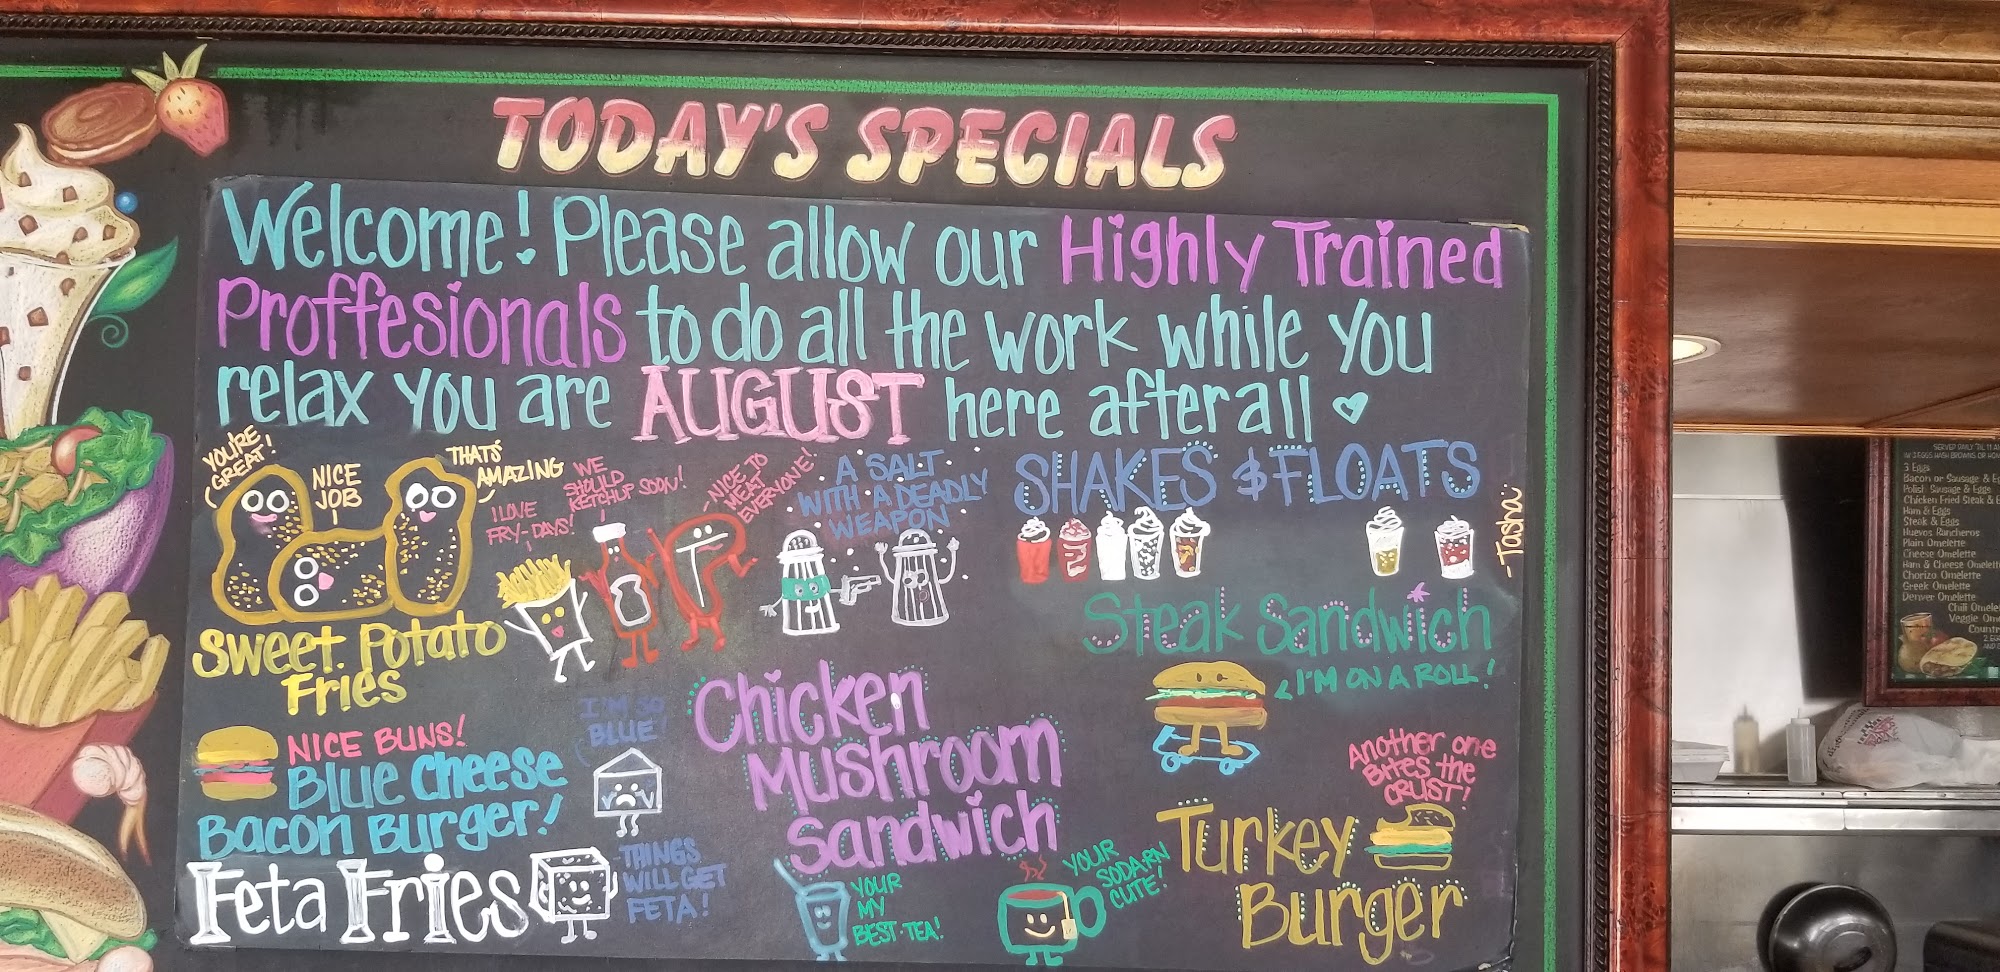 TODAY'S SPECIALS
Welcome! Please allow our Highly Trained
Proffesionals to do all the work while you
relax you are AUGUST here after all
YOU'RE
GREAT!
NICE
JOB
THATS'
AMAZING
I LOVE
FRY-DAYS!
WE
SHOULD
KETCHUP SOON!
NICE TO
MEAT
EVERYONE!
A SALT
WITH A DEADLY
WEAPON
SHAKES & FLOATS
-Tasha
Sweet Potato
Fries
Steak Sandwich
I'M ON A ROLL!
NICE BUNS!
Blue Cheese
Bacon Burger!
I'M SO
BLUE!
Chicken
Mushroom
Sandwich
Another one
Bites the
CRUST!
Turkey
Burger
Feta Fries
THINGS
WILL GET
FETA!
YOUR
MY
BEST-TEA!
YOUR
SODARN
CUTE!
3 Eggs
Bacon or Sausage & Eg
Polish Sausage & Eggs
Chicken Fried Steak & E
Ham & Eggs
Steak & Eggs
Huevos Rancheros
Plain Omelette
Cheese Omelette
Ham & Cheese Omelett
Chorizo Omelette
Greek Omelette
Denver Omelette
Chili Omele
Veggie Om
Countr